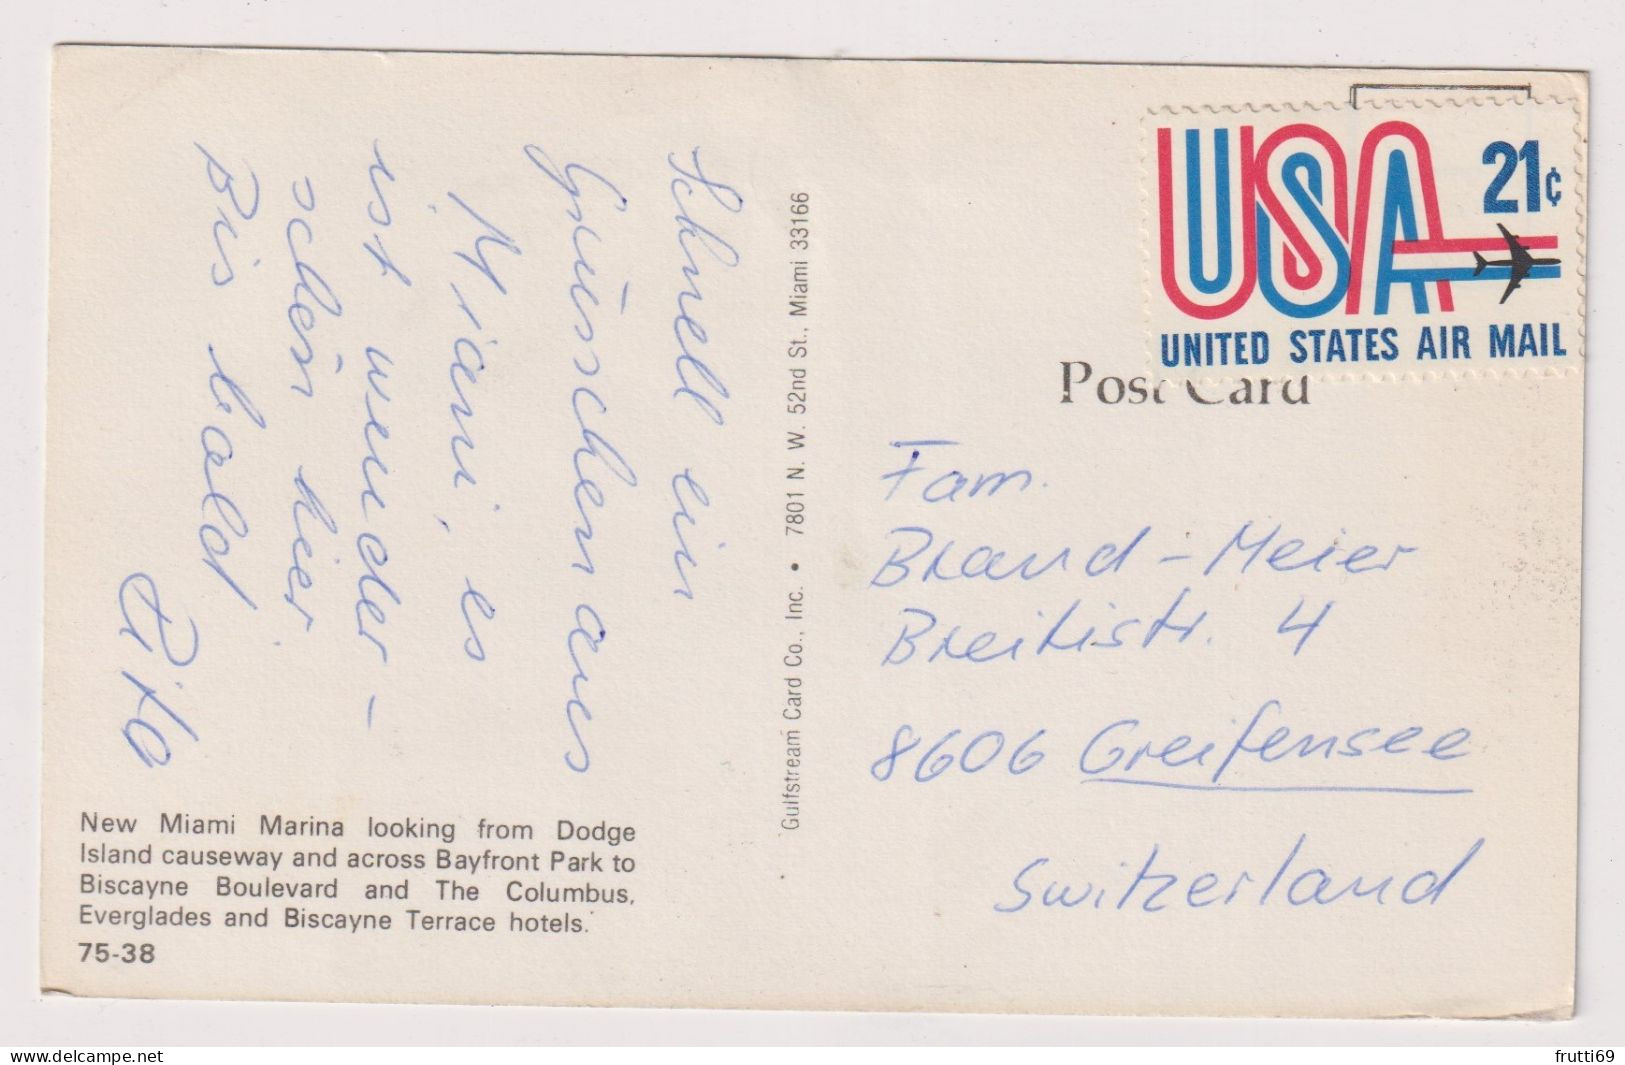 Schnell ein
Grüsschen aus
Miami, es
ist wunder-
schön hier.
Bis bald
Rita
New Miami Marina looking from Dodge
Island causeway and across Bayfront Park to
Biscayne Boulevard and The Columbus,
Everglades and Biscayne Terrace hotels.
75-38
Gulfstream Card Co., Inc. • 7801 N. W. 52nd St., Miami 33166
USA 21¢
UNITED STATES AIR MAIL
Post Card
Fam.
Brand-Meier
Breitistr. 4
8606 Greifensee
Switzerland
www.delcampe.net
frutti69